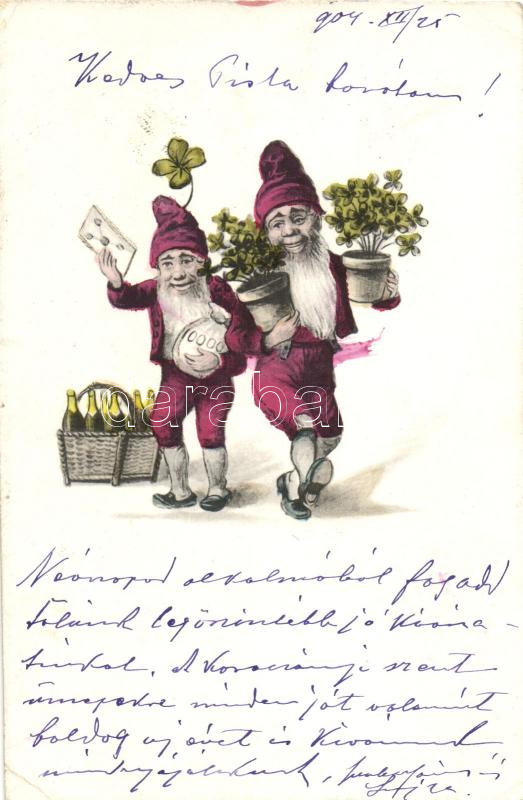 904. XII/25
Kedves Pista barátom!
10000
darabanth
Névnapod alkalmából fogadd
tőlünk legőszintébb jó kivána-
tinkat. A karácsonyi szent
ünnepekre minden jót valamint
boldog uj évet is kivánunk
mindnyájatoknak, és